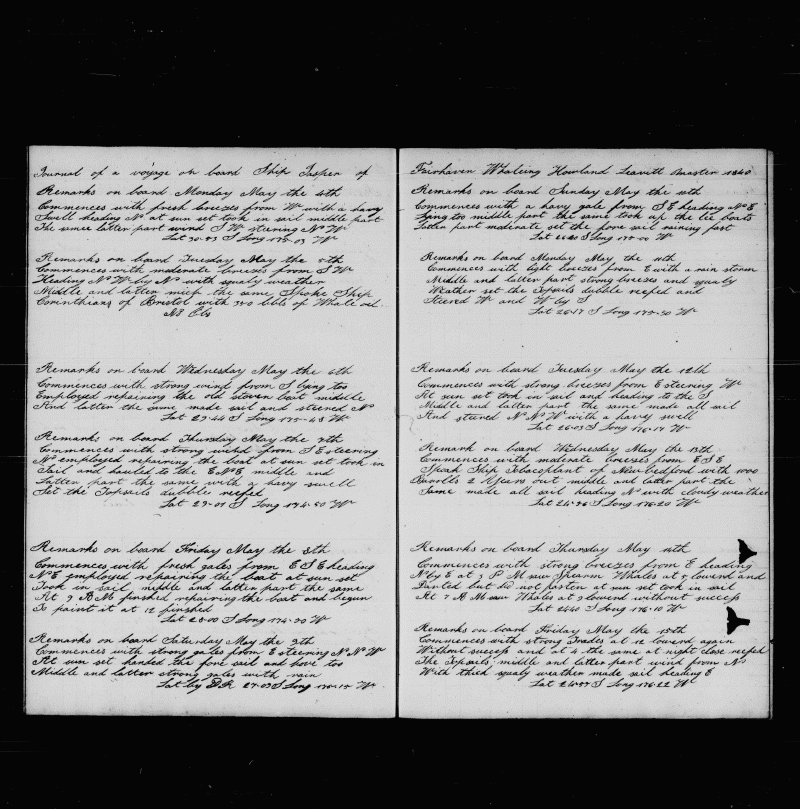 Journal of a voyage on board Ship Jasper of
Remarks on board Monday May the 4th
Commences with fresh breezes from W with a havy
Swell heading N at sun set took in sail middle part
The same latter part wind S W stering N W
Lat 30-43 S Long 175-03 W
Remarks on board Tuesday May the 5th
Commences with moderate breezes from S W
Heading N W by N with squaly weather
Middle and latter much the same Spoke Ship
Corinthians of Bristol with 340 bbls of Whale oil
No Obs
Remarks on board Wednesday May the 6th
Commences with strong wind from S lying too
Employed repairing the old stoven boat middle
And latter the same made sail and steered N
Lat 29-44 S Long 175-45 W
Remarks on board Thursday May the 7th
Commences with strong wind from S E steering
N employed repairing the boat at sun set took in
Sail and hauled to the E N E middle and
Latter part the same with a havy swell
Set the Topsails dubble reefed
Lat 29-01 S Long 174-50 W
Remarks on board Friday May the 8th
Commences with fresh gales from E S E heading
N E employed repairing the boat at sun set
Took in sail middle and latter part the same
At 9 A M finished repairing the boat and begun
To paint it at 12 finished
Lat 28-00 S Long 174-30 W
Remarks on board Saturday May the 9th
Commences with strong gales from E steering N N W
At sun set handed the fore sail and hove too
Middle and latter strong gales with rain
Lat by D R 27-03 S Long 175-15 W
Fairhaven Whaleing Howland Leavitt Master 1840
Remarks on board Sunday May the 10th
Commences with a havy gale from S E heading N E
Lying too middle part the same took up the lee boats
Latter part moderate set the fore sail raining fast
Lat 26-20 S Long 175-00 W
Remarks on board Monday May the 11th
Commences with light breezes from E with a rain storm
Middle and latter part strong breezes and squaly
Weather set the Topsails dubble reefed and
Steered W and W by S
Lat 26-17 S Long 175-50 W
Remarks on board Tuesday May the 12th
Commences with strong breezes from E steering W
At sun set took in sail and heading to the S
Middle and latter part the same made all sail
And stered N N W with a havey swell
Lat 26-03 S Long 176-17 W
Remarks on board Wednesday May the 13th
Commences with moderate breezes from E S E
Speak Ship Tobacoplant of Newbedford with 1000
Barrells 2 Years out middle and latter part the
Same made all sail heading N with cloudy weather
Lat 24-56 S Long 176-20 W
Remarks on board Thursday May 14th
Commences with strong breezes from E heading
N by E at 3 P M saw Spearm Whales at 5 lowerd and
Darted but did not fasten at sun set took in sail
At 7 A M saw Whales at 9 lowerd without success
Lat 24-40 S Long 176-10 W
Remarks on board Friday May the 15th
Commences with strong Trades at 12 lowerd again
Without success and at 4 the same at night close reefed
The Topsails middle and latter part wind from N
With thick squaly weather made sail heading E
Lat 24-57 S Long 176-22 W